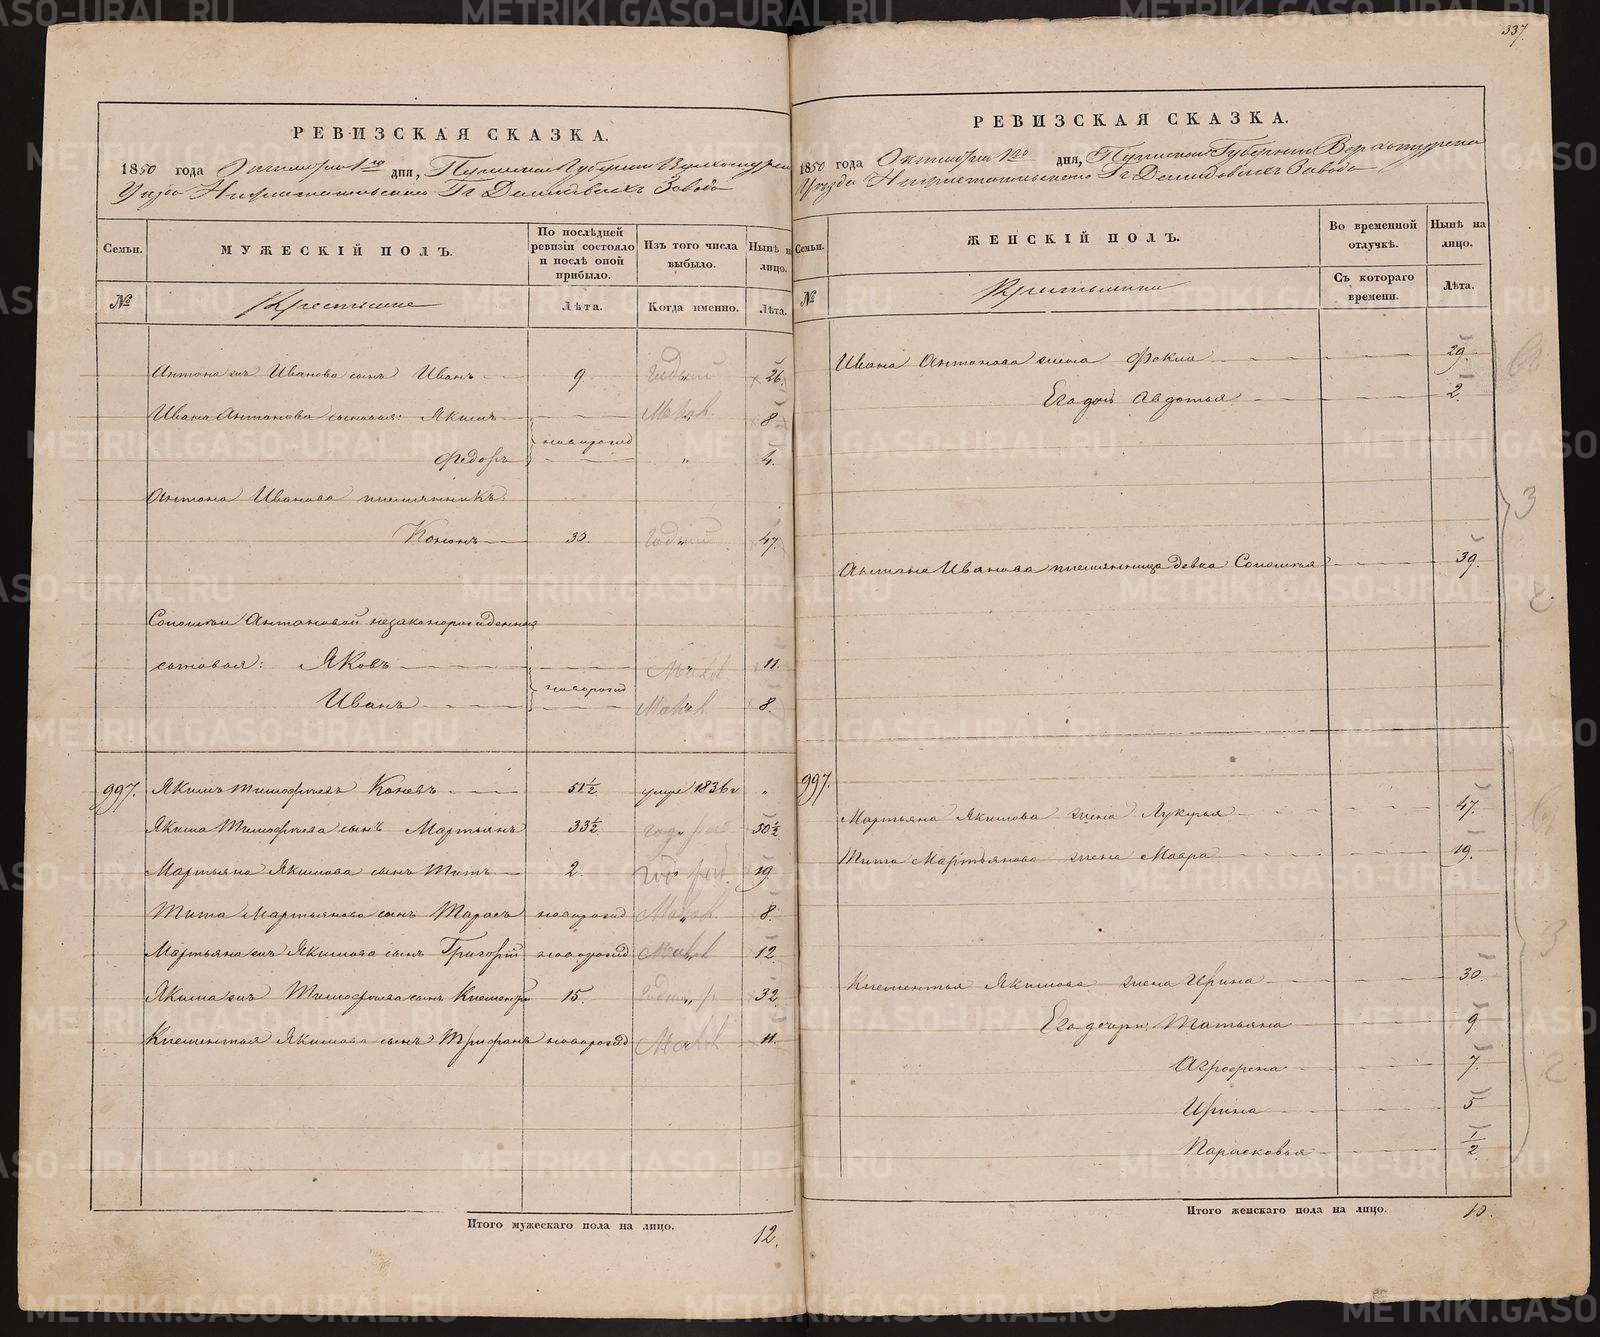 337.
РЕВИЗСКАЯ СКАЗКА.
1850 года Октября 1го дня, Пермской Губернии Верхотурскаго
Уезда Нижнетагильскаго Гг Демидовыхъ Завода
Семьи. МУЖЕСКІЙ ПОЛЪ. По послѣдней ревизіи состояло и послѣ оной прибыло. Изъ того числа выбыло. Нынѣ на лицо.
№ Крестьяне Лѣта. Когда именно. Лѣта.
Антона Иванова сынъ Иванъ 9 Годный 26.
Ивана Антонова сыновья: Якимъ Малол. 8
новорожд
Федоръ " 4.
Антона Иванова племянникъ
Кононъ 30. Годный 47.
Соломеи Антоновой незаконорожденные
сыновья: Яковъ Малол 11.
новорожд
Иванъ Малол. 8.
997. Якимъ Тимофеевъ Коневъ 51½ умре 1836 г "
Якима Тимофеева сынъ Мартьянъ 33½ 50½
Мартьяна Якимова сынъ Титъ 2. 19.
Тита Мартьянова сынъ Тарасъ новорожд Малол. 8.
Мартьяна Якимова сынъ Григорій новорожд Малол 12.
Якима Тимофеева сынъ Клементій 15. 32.
Клементья Якимова сынъ Трифонъ новорожд Малол 11.
Итого мужескаго пола на лицо. 12.
РЕВИЗСКАЯ СКАЗКА.
1850 года Октября 1го дня, Пермской Губернии Верхотурскаго
Уезда Нижнетагильскаго Гг Демидовыхъ Завода
Семьи. ЖЕНСКІЙ ПОЛЪ. Во временной отлучкѣ. Нынѣ на лицо.
№ Крестьянки Съ котораго времени. Лѣта.
Ивана Антонова жена Фокла 29.
Его дочь Авдотья 2.
Антона Иванова племянница девка Соломея 39.
997.
Мартьяна Якимова жена Лукерья 47.
Тита Мартьянова жена Мавра 19.
Клементья Якимова жена Ирина 30.
Его дочери: Татьяна 9.
Агрофена 7.
Ирина 5
Парасковья ½
Итого женскаго пола на лицо. 10.
METRIKI.GASO-URAL.RU